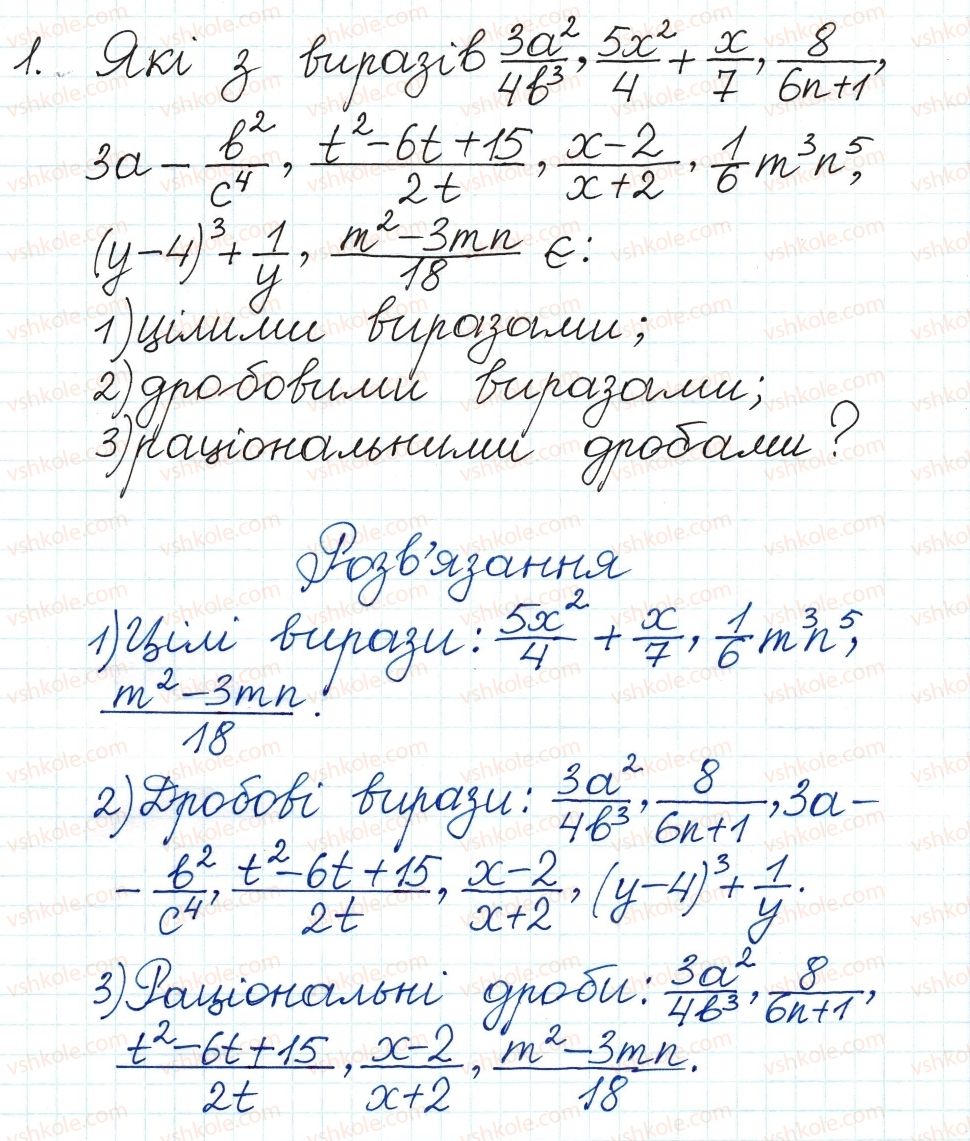 1. Які з виразів 3a²/4b³, 5x²/4 + x/7, 8/(6n+1),
3a − b²/c⁴, (t²−6t+15)/2t, (x−2)/(x+2), 1/6 m³n⁵,
(y−4)³ + 1/y, (m²−3mn)/18 є:
1) цілими виразами;
2) дробовими виразами;
3) раціональними дробами?
Розв'язання
1) Цілі вирази: 5x²/4 + x/7, 1/6 m³n⁵,
(m²−3mn)/18.
2) Дробові вирази: 3a²/4b³, 8/(6n+1), 3a −
− b²/c⁴, (t²−6t+15)/2t, (x−2)/(x+2), (y−4)³ + 1/y.
3) Раціональні дроби: 3a²/4b³, 8/(6n+1),
(t²−6t+15)/2t, (x−2)/(x+2), (m²−3mn)/18.
vshkole.com